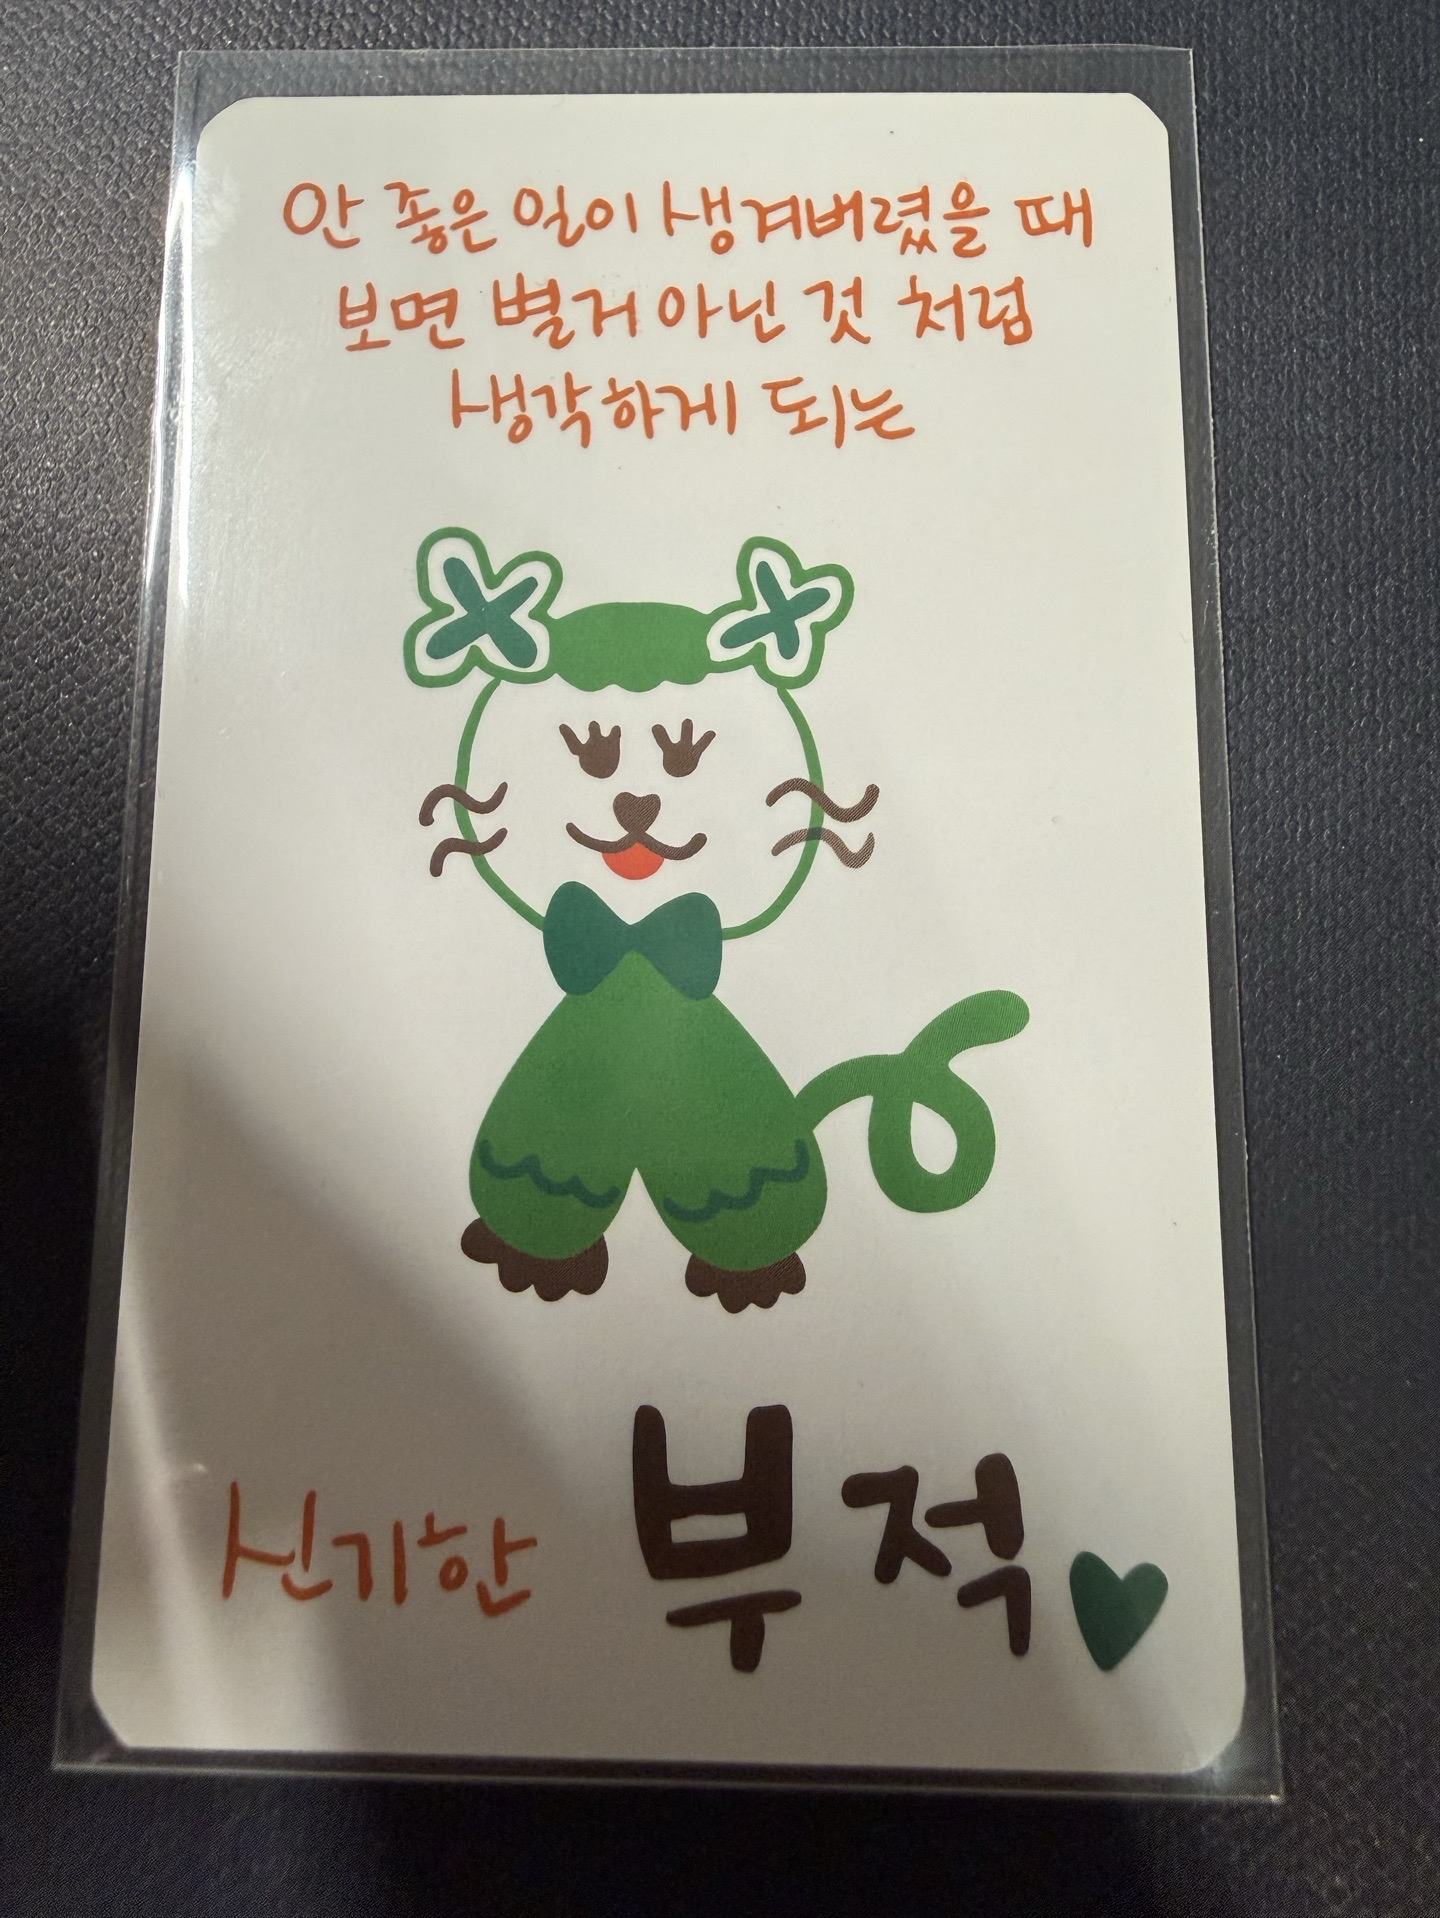 안 좋은 일이 생겨버렸을 때
보면 별거 아닌 것 처럼
생각하게 되는
신기한 부적